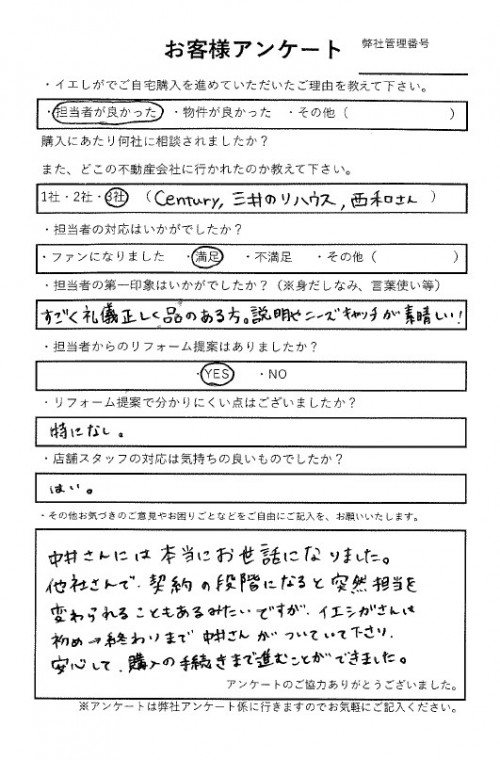 お客様アンケート 弊社管理番号
・イエしがでご自宅購入を進めていただいたご理由を教えて下さい。
・担当者が良かった ・物件が良かった ・その他（ ）
購入にあたり何社に相談されましたか？
また、どこの不動産会社に行かれたのか教えて下さい。
1社・2社・3社 （Century, 三井のリハウス, 西和さん）
・担当者の対応はいかがでしたか？
・ファンになりました ・満足 ・不満足 ・その他（ ）
・担当者の第一印象はいかがでしたか？（※身だしなみ、言葉使い等）
すごく礼儀正しく品のある方。説明やニーズキャッチが素晴しい！
・担当者からのリフォーム提案はありましたか？
・YES ・NO
・リフォーム提案で分かりにくい点はございましたか？
特になし。
・店舗スタッフの対応は気持ちの良いものでしたか？
はい。
・その他お気づきのご意見やお困りごとなどをご自由にご記入を、お願いいたします。
中井さんには本当にお世話になりました。
他社さんで、契約の段階になると突然担当を
変わられることもあるみたいですが、イエシガさんは
初め→終わりまで中井さんがついていて下さり、
安心して、購入の手続きまで進むことができました。
アンケートのご協力ありがとうございました。
※アンケートは弊社アンケート係に行きますのでお気軽にご記入ください。